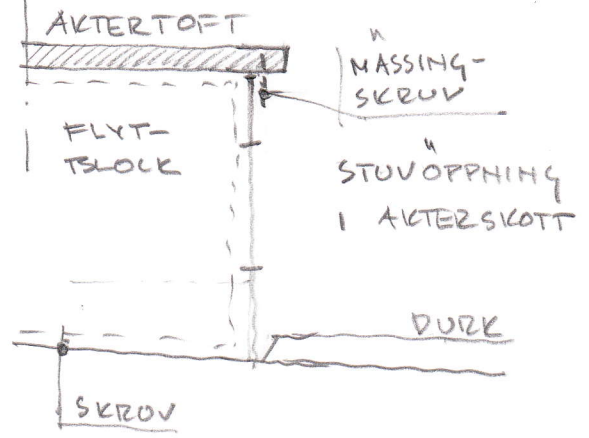 AKTERTOFT
MÄSSING-
SKRUV
FLYT-
BLOCK
STUVÖPPNING
I AKTERSKOTT
DURK
SKROV